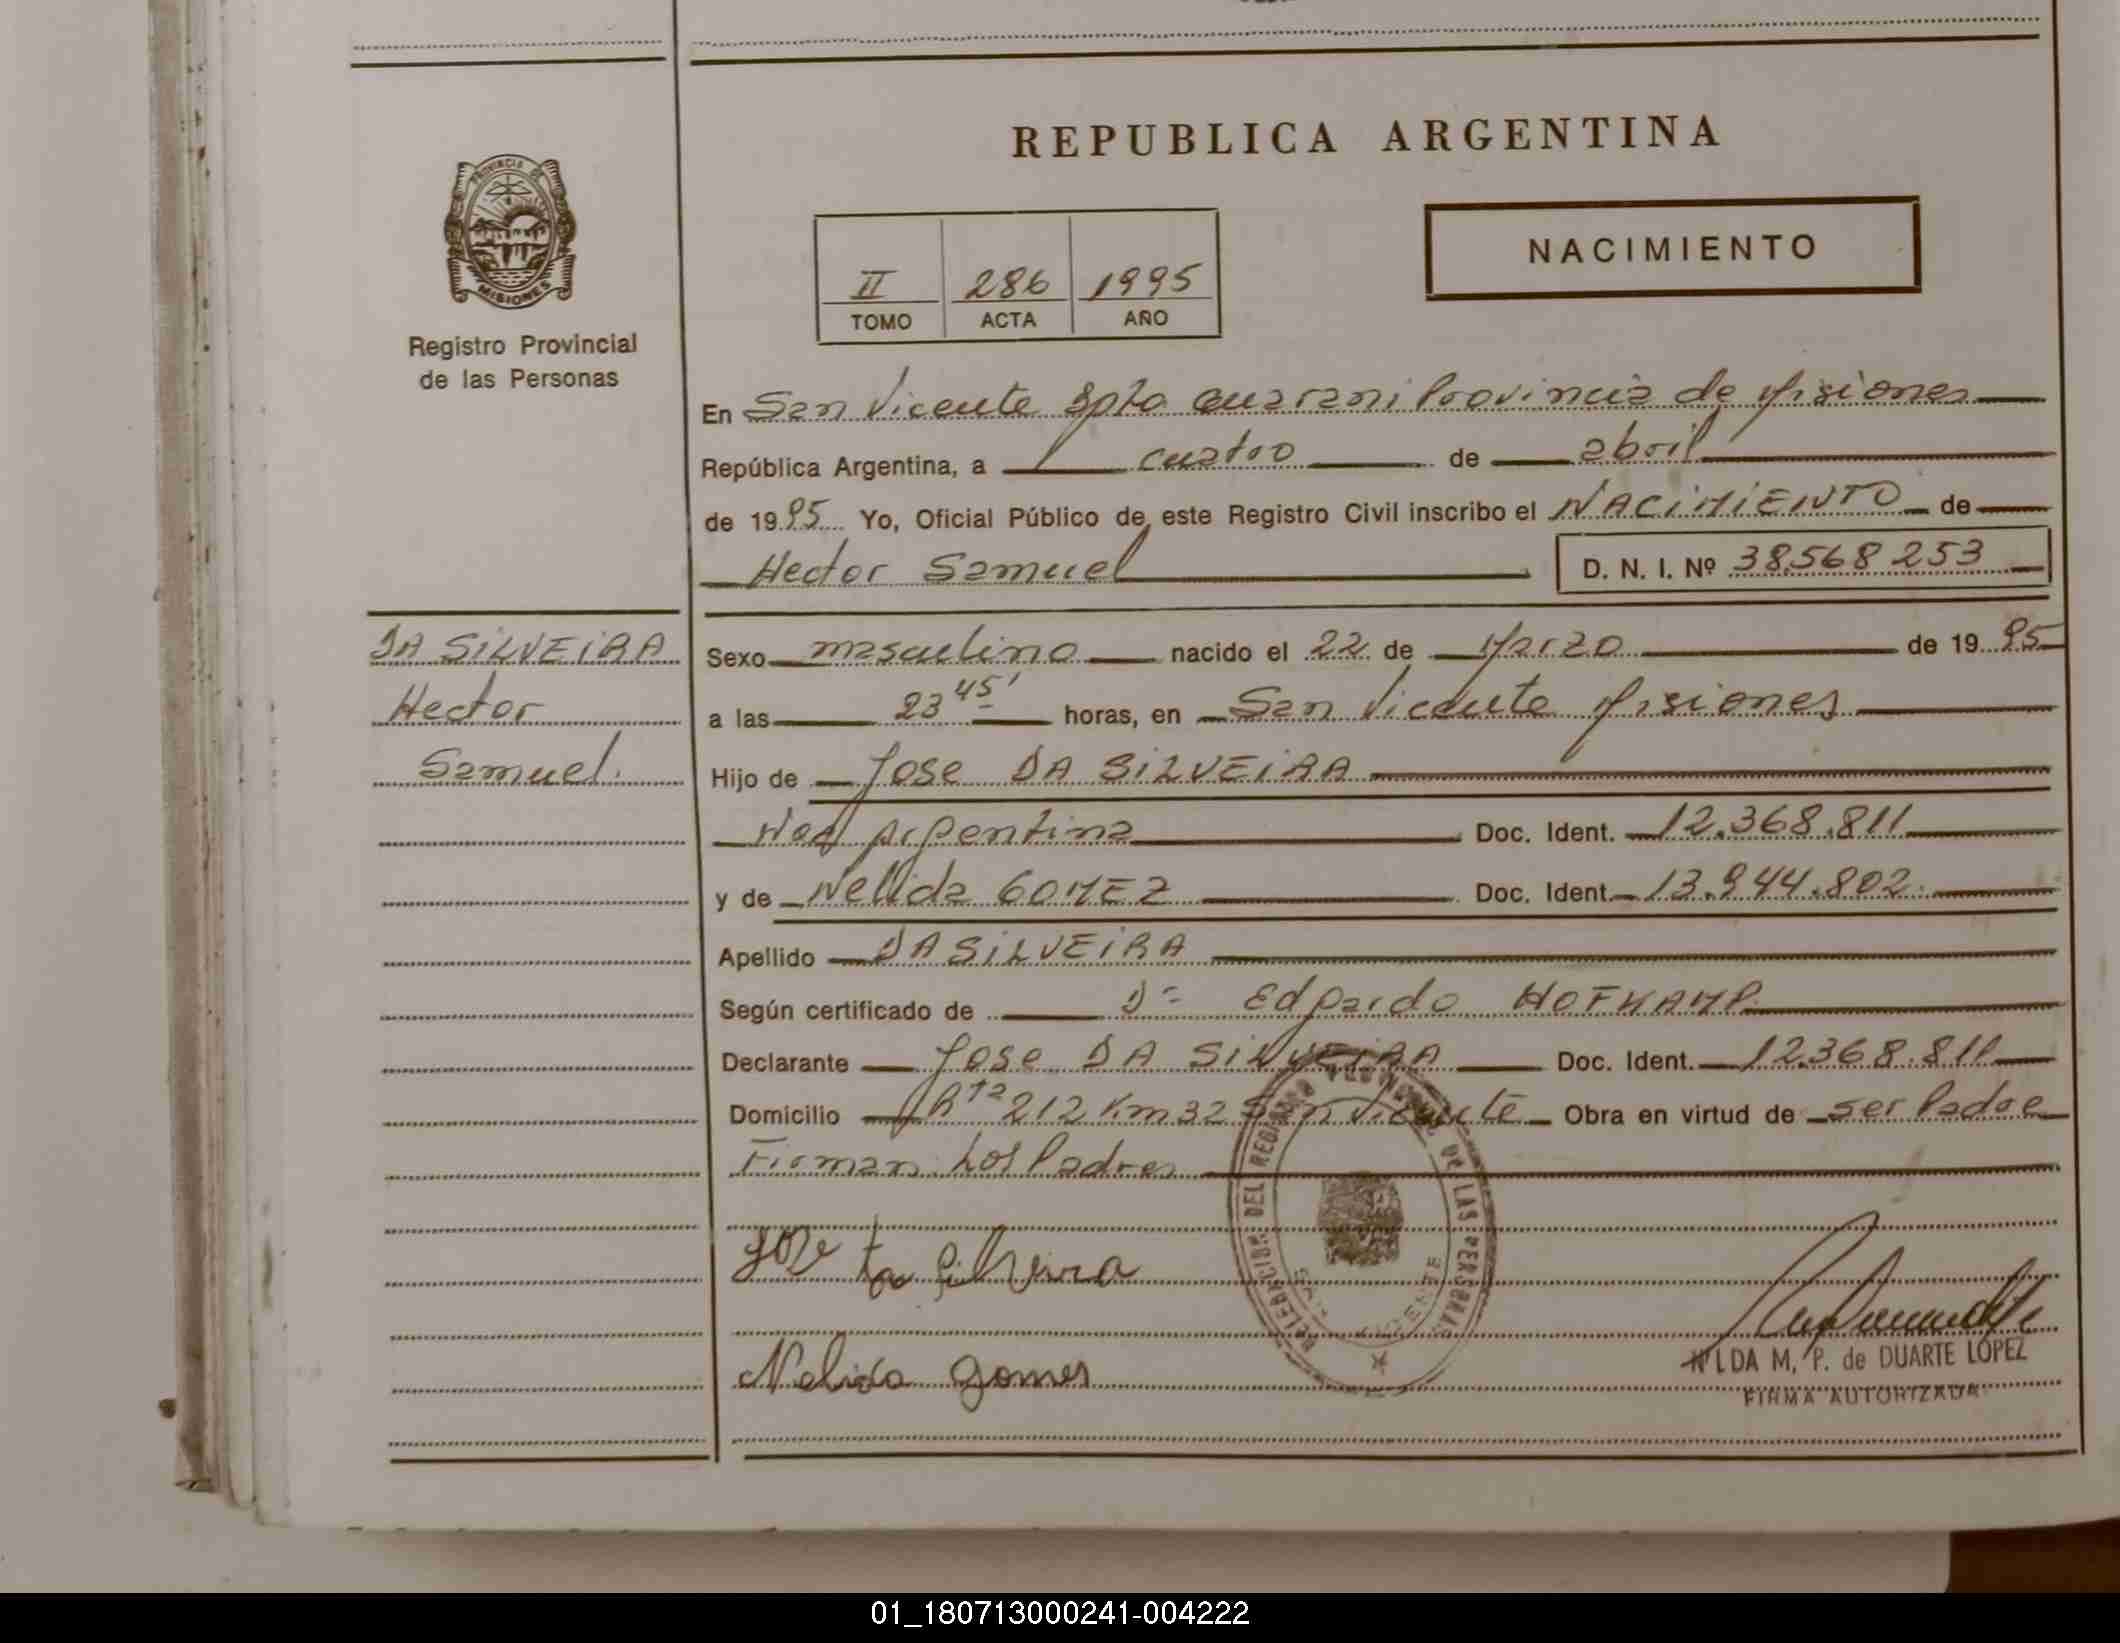 REPUBLICA ARGENTINA
PROVINCIA DE
MISIONES
Registro Provincial
de las Personas
NACIMIENTO
II 286 1995
TOMO ACTA AÑO
En San Vicente Dpto Guarani Provincia de Misiones
República Argentina, a cuatro de abril
de 1995 Yo, Oficial Público de este Registro Civil inscribo el NACIMIENTO de
Hector Samuel D. N. I. Nº 38.568 253
DA SILVEIRA
Hector
Samuel.
Sexo masculino nacido el 22 de Marzo de 1995
a las 23 45' horas, en San Vicente Misiones
Hijo de Jose DA SILVEIRA
Nac Argentina Doc. Ident. 12.368.811
y de Nelida GOMEZ Doc. Ident. 13.944.802.
Apellido DA SILVEIRA
Según certificado de Dr Edgardo HOFKAMP.
Declarante Jose DA SILVEIRA Doc. Ident. 12.368.811
Domicilio Rta 212 Km 32 San Vicente Obra en virtud de ser Padre
Firman Los Padres
DELEGACION DEL REGISTRO PROVINCIAL DE LAS PERSONAS
SAN VICENTE
Jose da Silveira
Nelida Gomes
NILDA M. P. de DUARTE LOPEZ
FIRMA AUTORIZADA
01_180713000241-004222